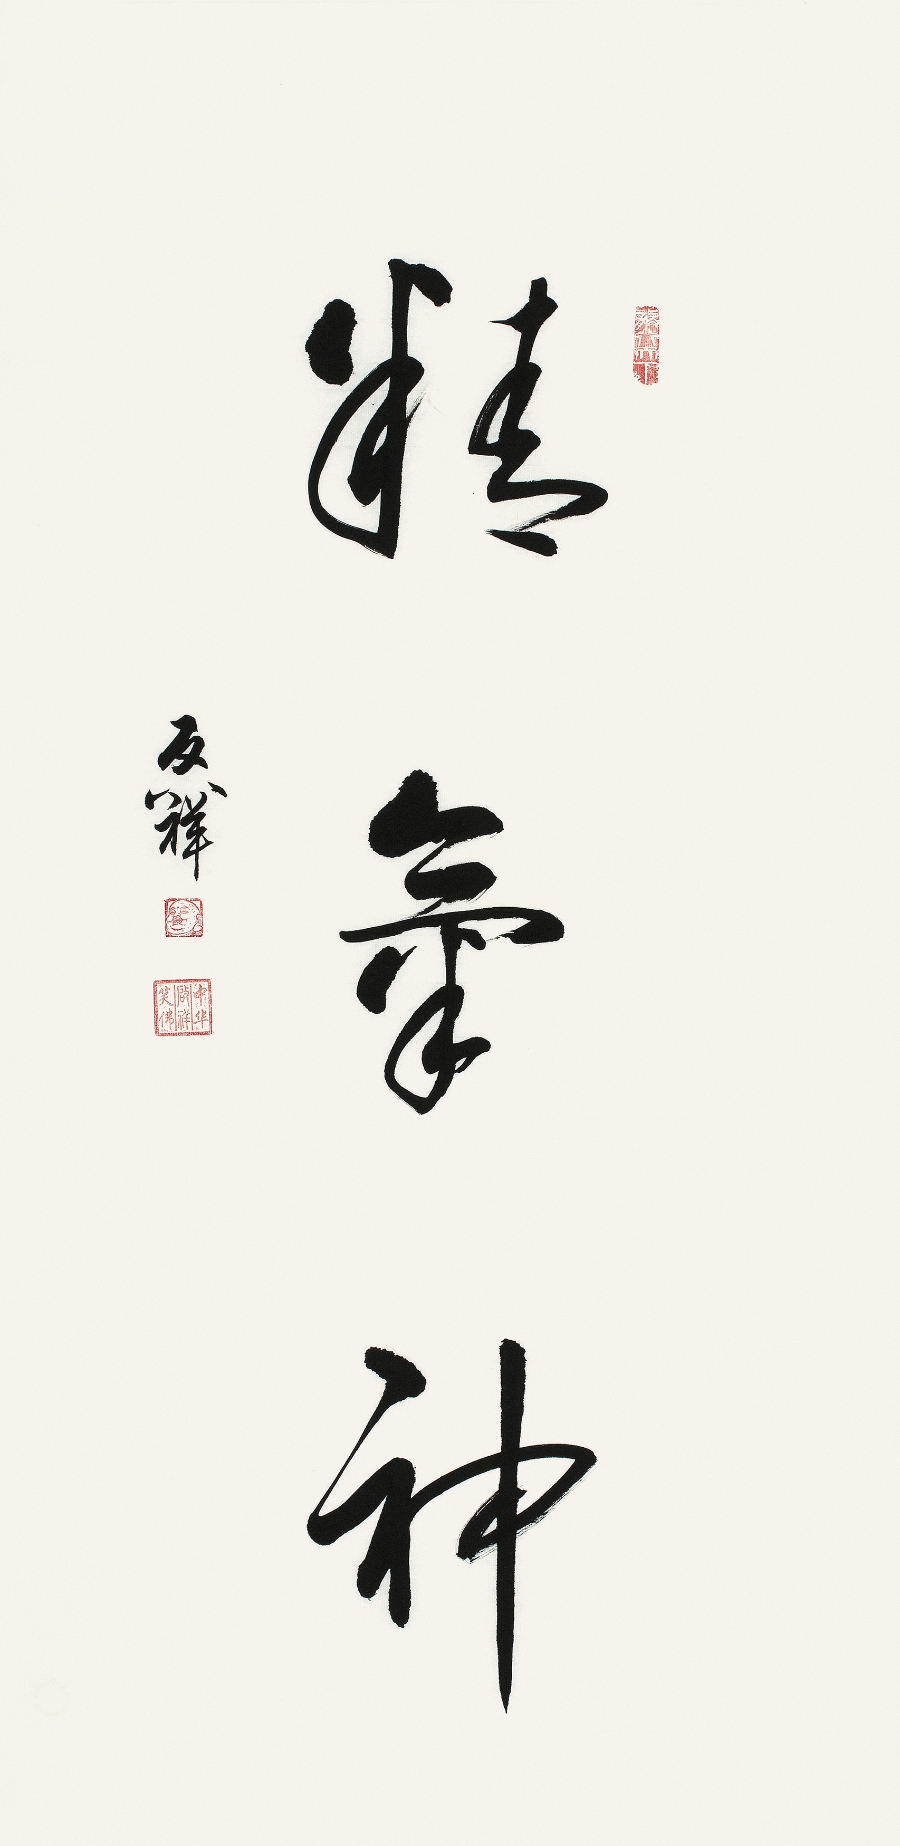 精氣神
友祥
中华
啟祥
笑佛